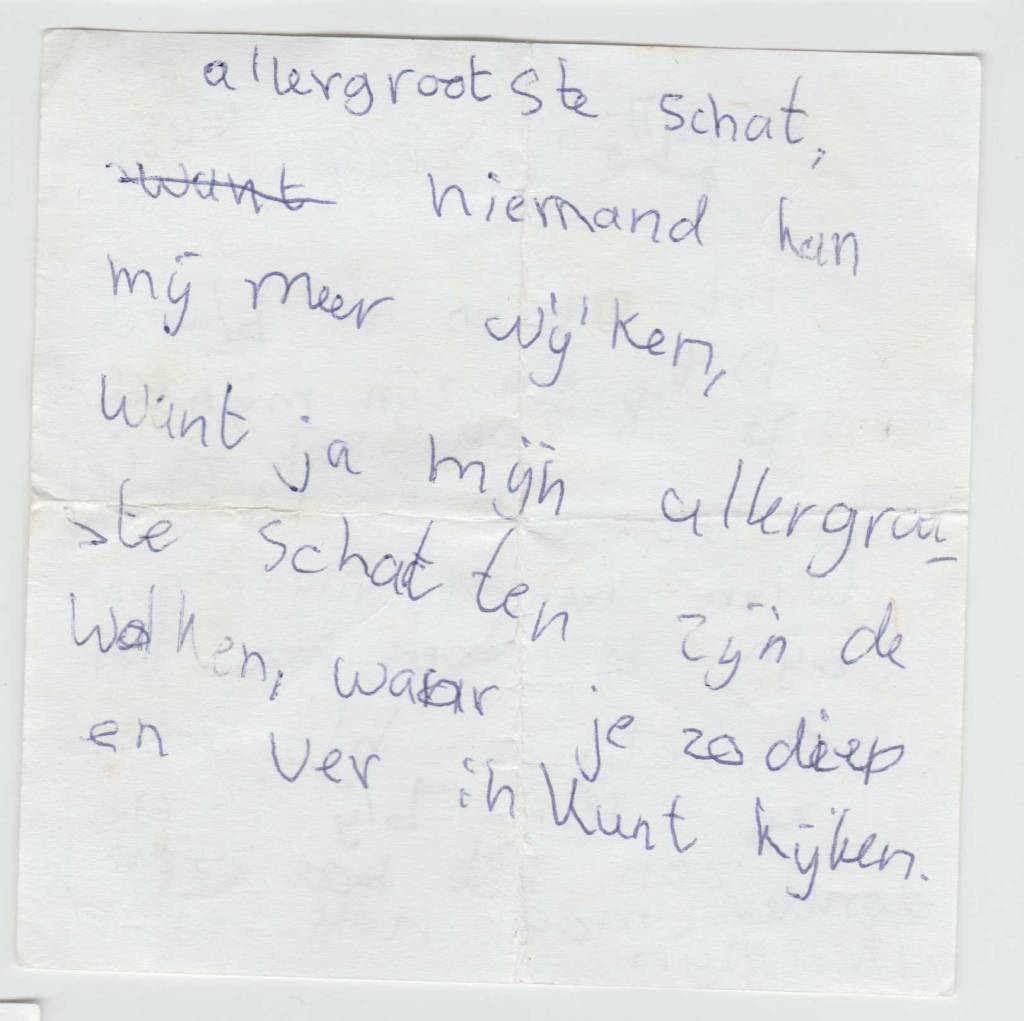 allergrootste schat,
want niemand kan
mij meer wijken,
want ja mijn allergroo_
ste schatten zijn de
wolken, waar je zo diep
en ver in kunt kijken.